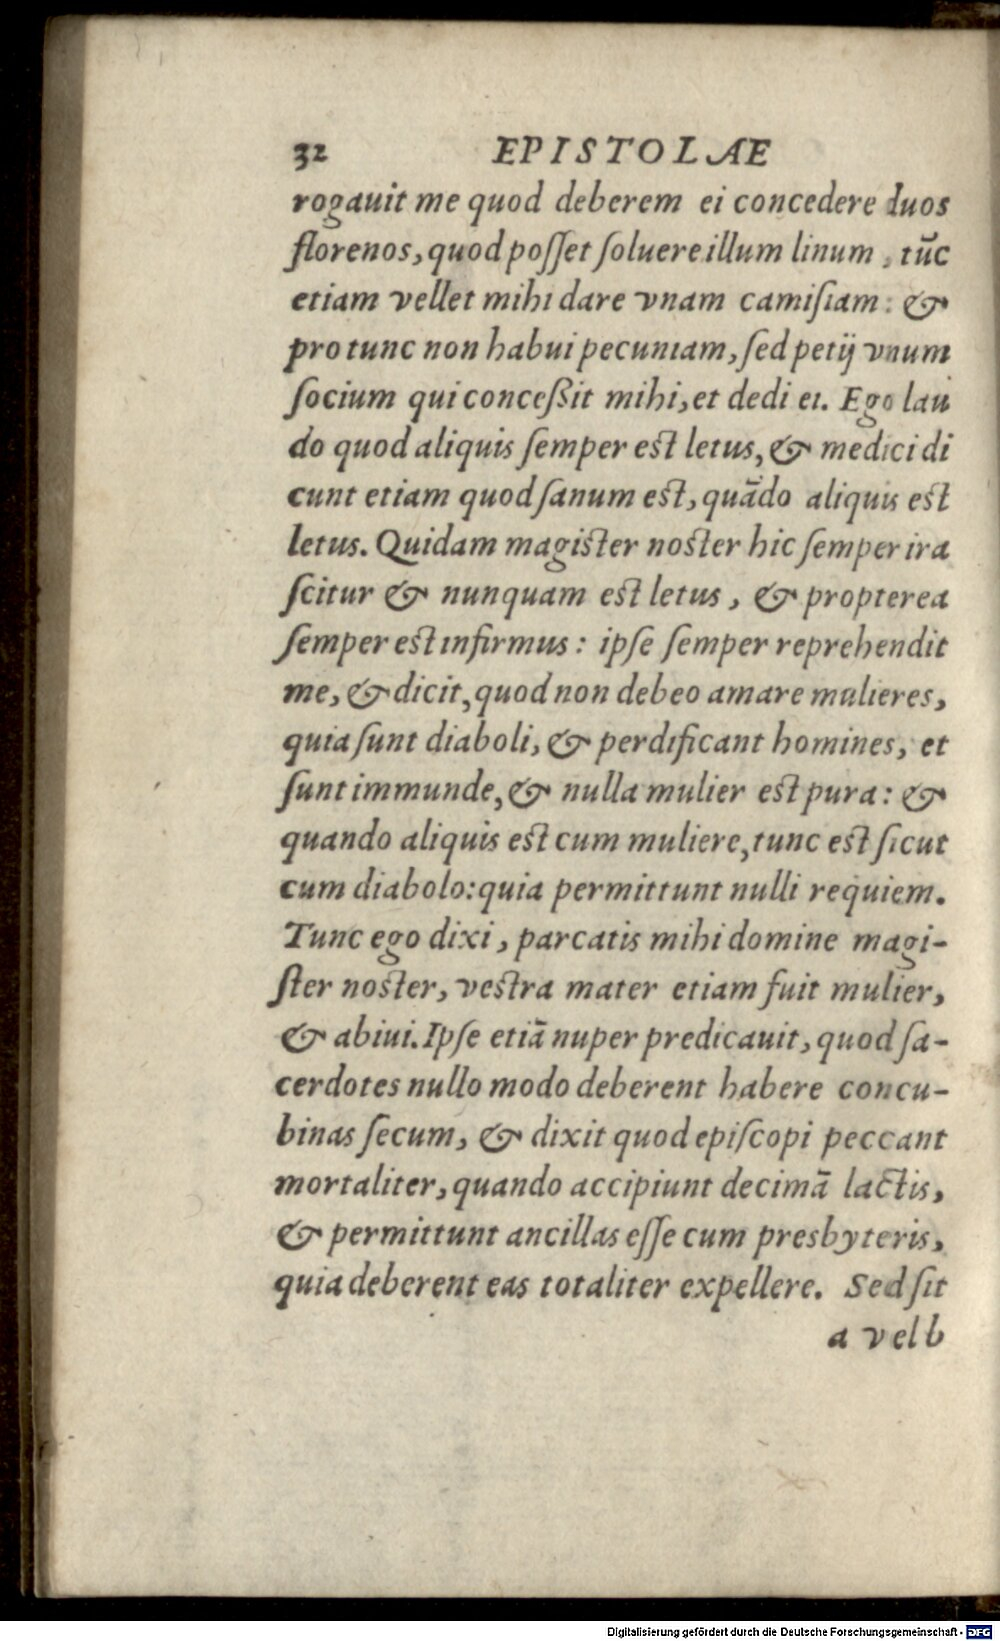 32 EPISTOLAE
rogauit me quod deberem ei concedere duos
florenos, quod poſſet ſoluere illum linum, tūc
etiam vellet mihi dare vnam camiſiam: &
pro tunc non habui pecuniam, ſed petij vnum
ſocium qui conceßit mihi, et dedi ei. Ego lau
do quod aliquis ſemper est letus, & medici di
cunt etiam quod ſanum est, quādo aliquis est
letus. Quidam magister noster hic ſemper ira
ſcitur & nunquam est letus, & propterea
ſemper est infirmus: ipſe ſemper reprehendit
me, & dicit, quod non debeo amare mulieres,
quia ſunt diaboli, & perdificant homines, et
ſunt immunde, & nulla mulier est pura: &
quando aliquis est cum muliere, tunc est ſicut
cum diabolo: quia permittunt nulli requiem.
Tunc ego dixi, parcatis mihi domine magi-
ſter noster, vestra mater etiam fuit mulier,
& abiui. Ipſe etiā nuper predicauit, quod ſa-
cerdotes nullo modo deberent habere concu-
binas ſecum, & dixit quod epiſcopi peccant
mortaliter, quando accipiunt decimā lactis,
& permittunt ancillas eſſe cum presbyteris,
quia deberent eas totaliter expellere. Sed ſit
a vel b
Digitalisierung gefördert durch die Deutsche Forschungsgemeinschaft - DFG